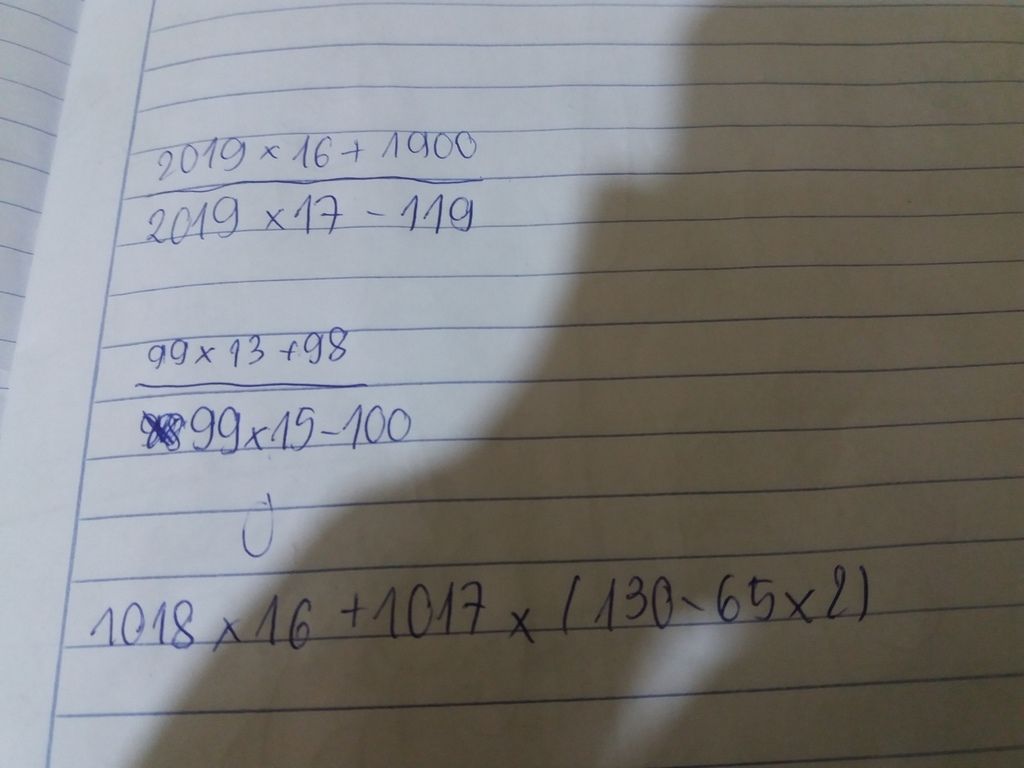 2019 × 16 + 1900
2019 × 17 - 119
99 × 13 + 98
99 × 15 - 100
1018 × 16 + 1017 × (130 - 65 × 2)